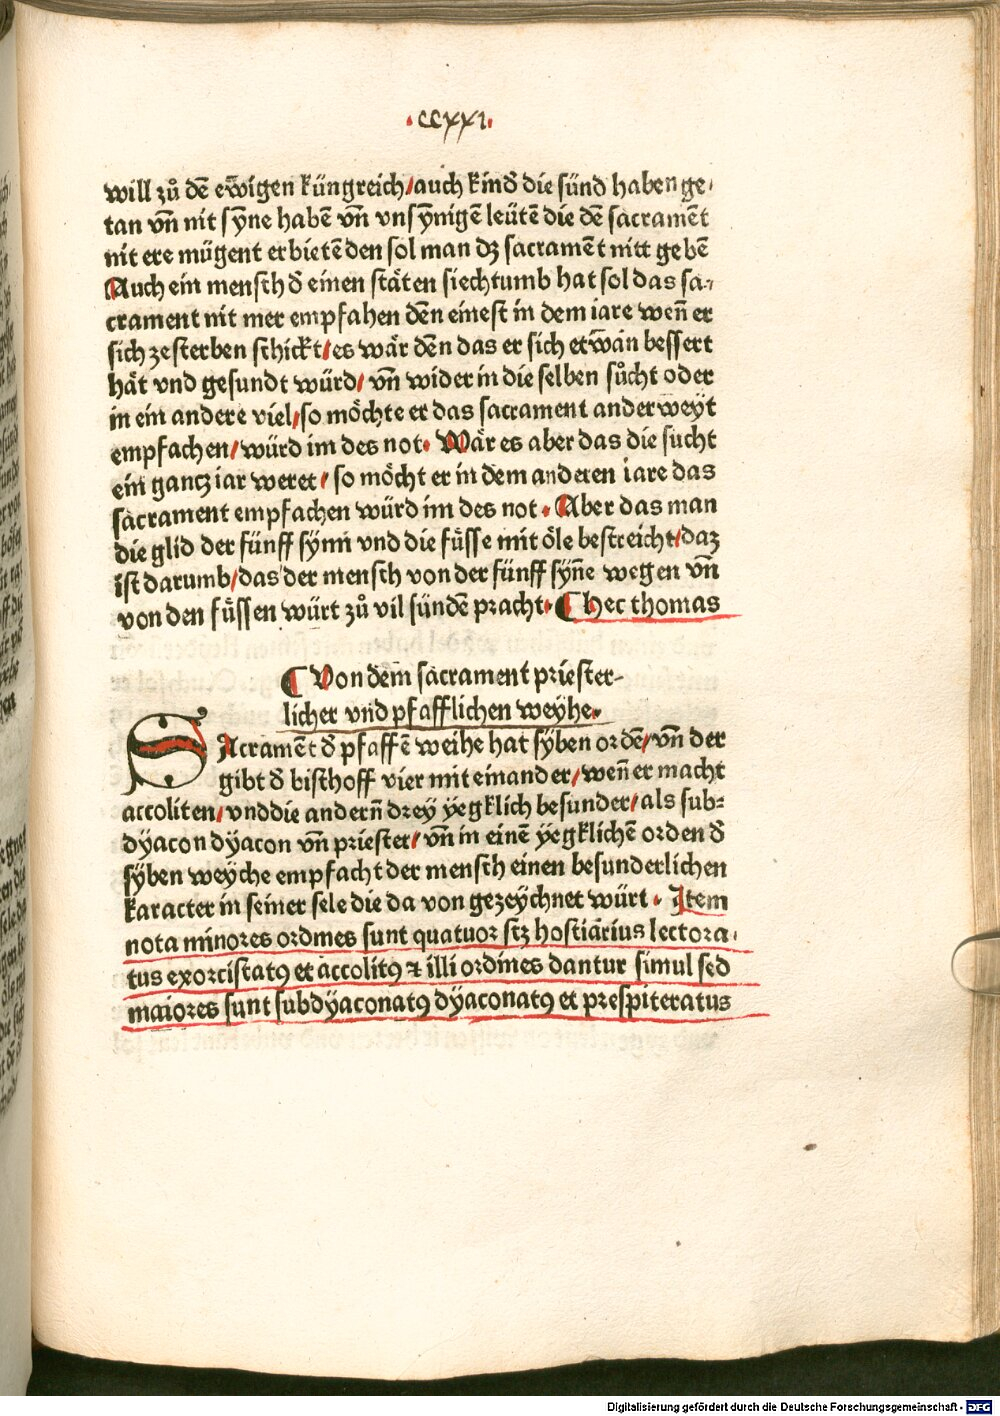 ·ccxxi·
will zů dē ewigen küngreich/auch kind̄ die sünd haben ge-
tan vn̄ nit sÿne habē vn̄ vnsÿnigē leütē die dē sacramēt
nit ere mügent erbietē den sol man dz sacramēt nitt gebē
Auch ein mensch d̄ einen stäten siechtumb hat sol das sa-
crament nit mer empfahen dēn einest in dem iare wen̄ er
sich ze sterben schickt/es wär dēn das er sich etwan bessert
hät vnd gesundt würd/ vn̄ wider in die selben sůcht oder
in ein andere viel/so möchte er das sacrament anderweyt
empfachen/würd im des not· Wär es aber das die sucht
ein gantz iar weret/ so möcht er in dem anderen iare das
sacrament empfachen würd im des not· Aber das man
die glid der fünff sÿnn vnd die füsse mit öle bestreicht/daz
ist darumb/das der mensch von der fünff sÿn̄e wegen vn̄
von den füssen würt zů vil sündē pracht· ¶ hec thomas
¶ Von dem sacrament priester-
licher vnd pfafflichen weÿhe·
SAcramēt d̄ pfaffē weihe hat sÿben ordē/vn̄ der
gibt d̄ bischoff vier mit einander/wen̄ er macht
accoliten/vnd die andern̄ drey ÿegklich besunder/als sub-
dÿacon dÿacon vn̄ priester/vn̄ in einē ÿegklichē orden d̄
sÿben weÿche empfacht der mensch einen besunderlichen
karacter in seiner sele die da von gezeÿchnet würt· Item
nota minores ordines sunt quatuor scz hostiarius lectora-
tus exorcistatꝯ et accolitꝯ ⁊ illi ordines dantur simul sed
maiores sunt subdÿaconatꝯ dÿaconatꝯ et prespiteratus
Digitalisierung gefördert durch die Deutsche Forschungsgemeinschaft - DFG